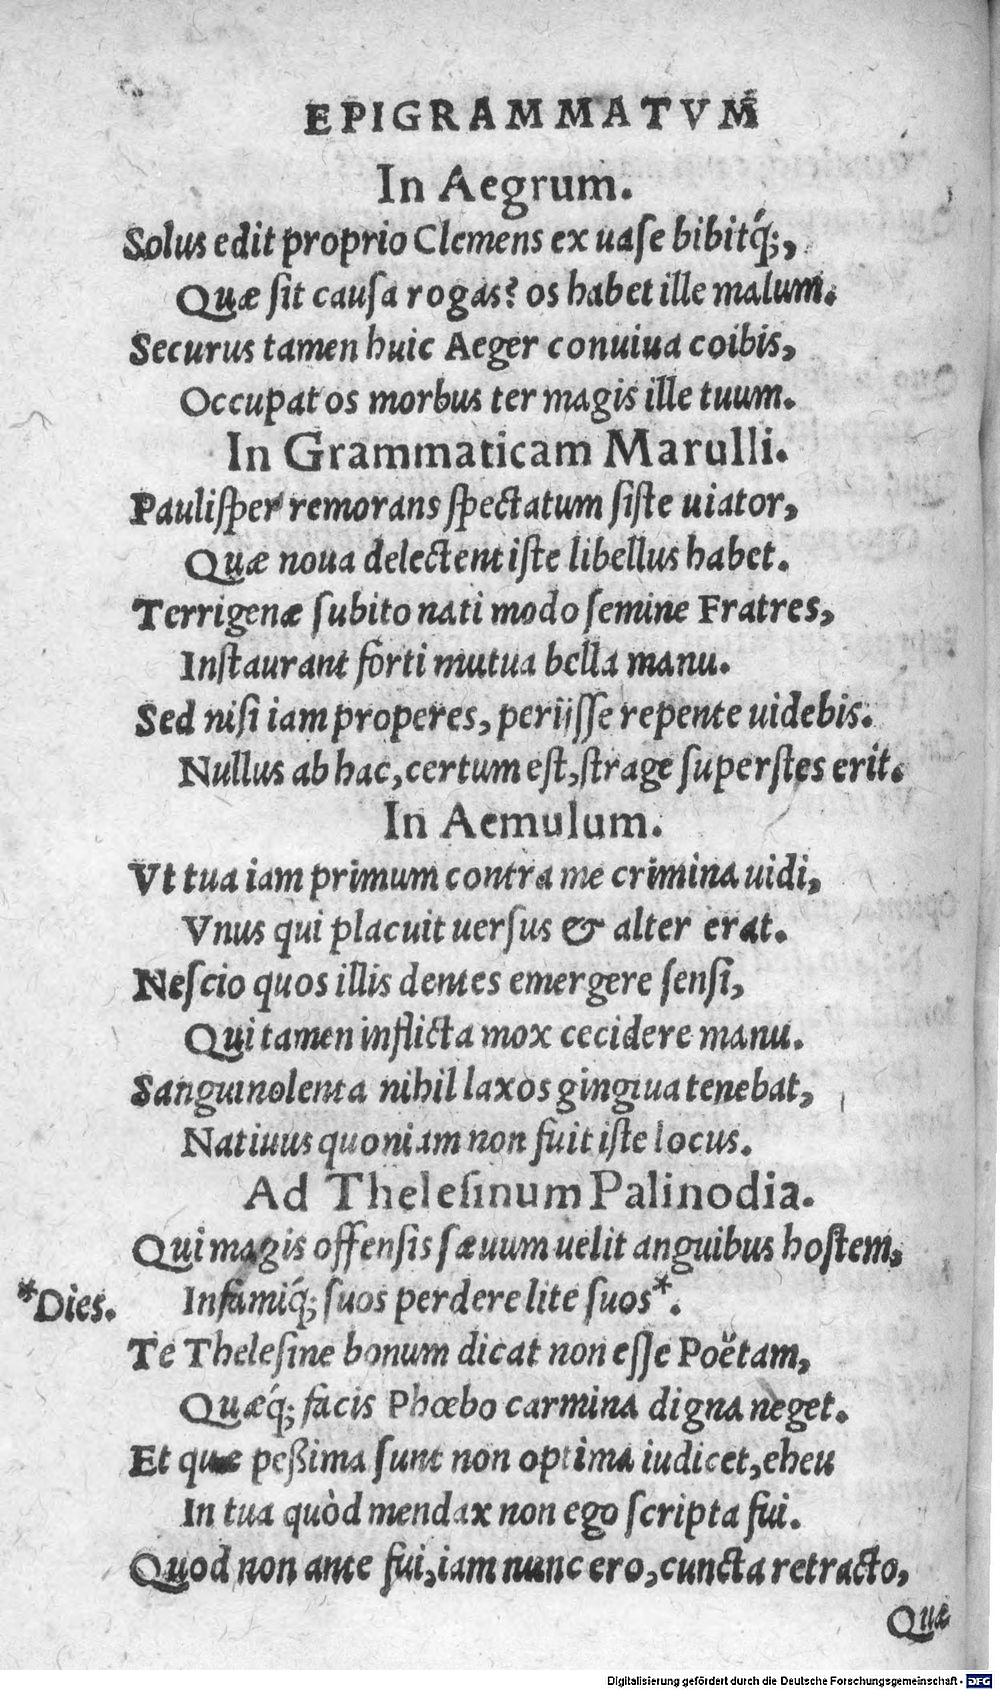 EPIGRAMMATVM
In Aegrum.
Solus edit proprio Clemens ex uase bibitq́;,
Quæ sit causa rogas? os habet ille malum.
Securus tamen huic Aeger conuiua coibis,
Occupat os morbus ter magis ille tuum.
In Grammaticam Marulli.
Paulisper remorans spectatum siste uiator,
Quæ noua delectent iste libellus habet.
Terrigenæ subito nati modo semine Fratres,
Instaurant forti mutua bella manu.
Sed nisi iam properes, periisse repente uidebis.
Nullus ab hac, certum est, strage superstes erit.
In Aemulum.
Vt tua iam primum contra me crimina uidi,
Vnus qui placuit uersus & alter erat.
Nescio quos illis dentes emergere sensi,
Qui tamen inflicta mox cecidere manu.
Sanguinolenta nihil laxos gingiua tenebat,
Natiuus quoniam non fuit iste locus.
Ad Thelesinum Palinodia.
Qui magis offensis sæuum uelit anguibus hostem,
*Dies. Infamiq́; suos perdere lite suos*.
Te Thelesine bonum dicat non esse Poëtam,
Quæq́; facis Phœbo carmina digna neget.
Et quæ peßima sunt non optima iudicet, eheu
In tua quòd mendax non ego scripta fui.
Quod non ante fui, iam nunc ero, cuncta retracto,
Quæ
Digitalisierung gefördert durch die Deutsche Forschungsgemeinschaft - DFG